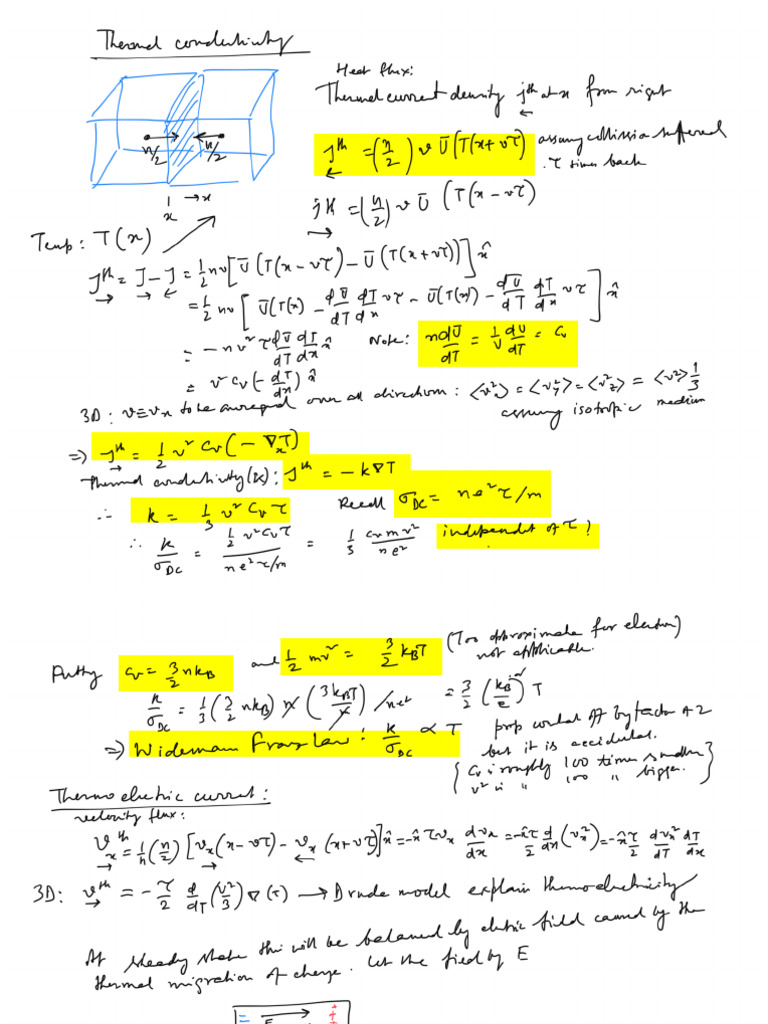 Thermal conductivity
Heat flux:
Thermal current density j^th at x from right
←
j^th = (n/2) v Ū(T(x+vτ)) assumy collission suffered
← τ times back
n/2 n/2
| → x
x
j^th = (n/2) v Ū (T(x-vτ)
→
Temp: T(x)
J^th = J - J = 1/2 nv [Ū(T(x-vτ) - Ū(T(x+vτ))] x̂
→ → ←
= 1/2 nv [Ū(T(x) - dŪ/dT dT/dx vτ - Ū(T(x)) - dŪ/dT dT/dx vτ] x̂
= -nv² τ dŪ/dT dT/dx x̂ Note: n dŪ/dT = 1/V dU/dT = cv
= v² cv (-dT/dx) x̂
3D: v≡vx to be averaged over all direction: <vx²> = <vy²> = <vz²> = <v²> 1/3
assuming isotropic medium
=) J^th = 1/2 v² cv (-∇xT)
→
Thermal conductivity (k): J^th = -k∇T
∴ k = 1/3 v² cv τ Recall σDC = ne²τ/m
∴ k/σDC = 1/2 v² cv τ / ne²τ/m = 1/3 cv mv²/ne² independent of τ !
Putty cv = 3/2 nkB and 1/2 mv² = 3/2 kBT (Too approximate for electron)
not applicable.
k/σDC = 1/3 (3/2 nkB) n (3kBT/) /ne² = 3/2 (kB/e)² T
=) Widemann Franz Law: k/σDC ∝ T prop constat off by factor of 2
but it is accidental.
{cv is roughly 100 times smaller
v² is " 100 " bigger.}
Thermoelectric current:
velocity flux:
v^th x = 1/n (n/2) [vx(x-vτ) - vx(x+vτ)] x̂ = -x̂ τ vx dvx/dx = -x̂ τ/2 d/dx (vx²) = -x̂ τ/2 dvx²/dT dT/dx
→ → ←
3D: v^th = -τ/2 d/dT (v²/3) ∇(T) → Drude model explain thermoelectricity
→
At steady state this will be balanced by eletric field caused by the
thermal migration of charge. Let the field by E
= E → +
+